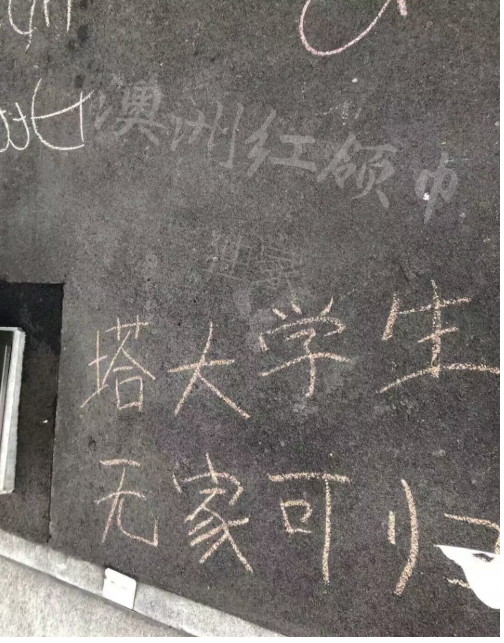 澳洲红领巾
塔大学生
无家可归